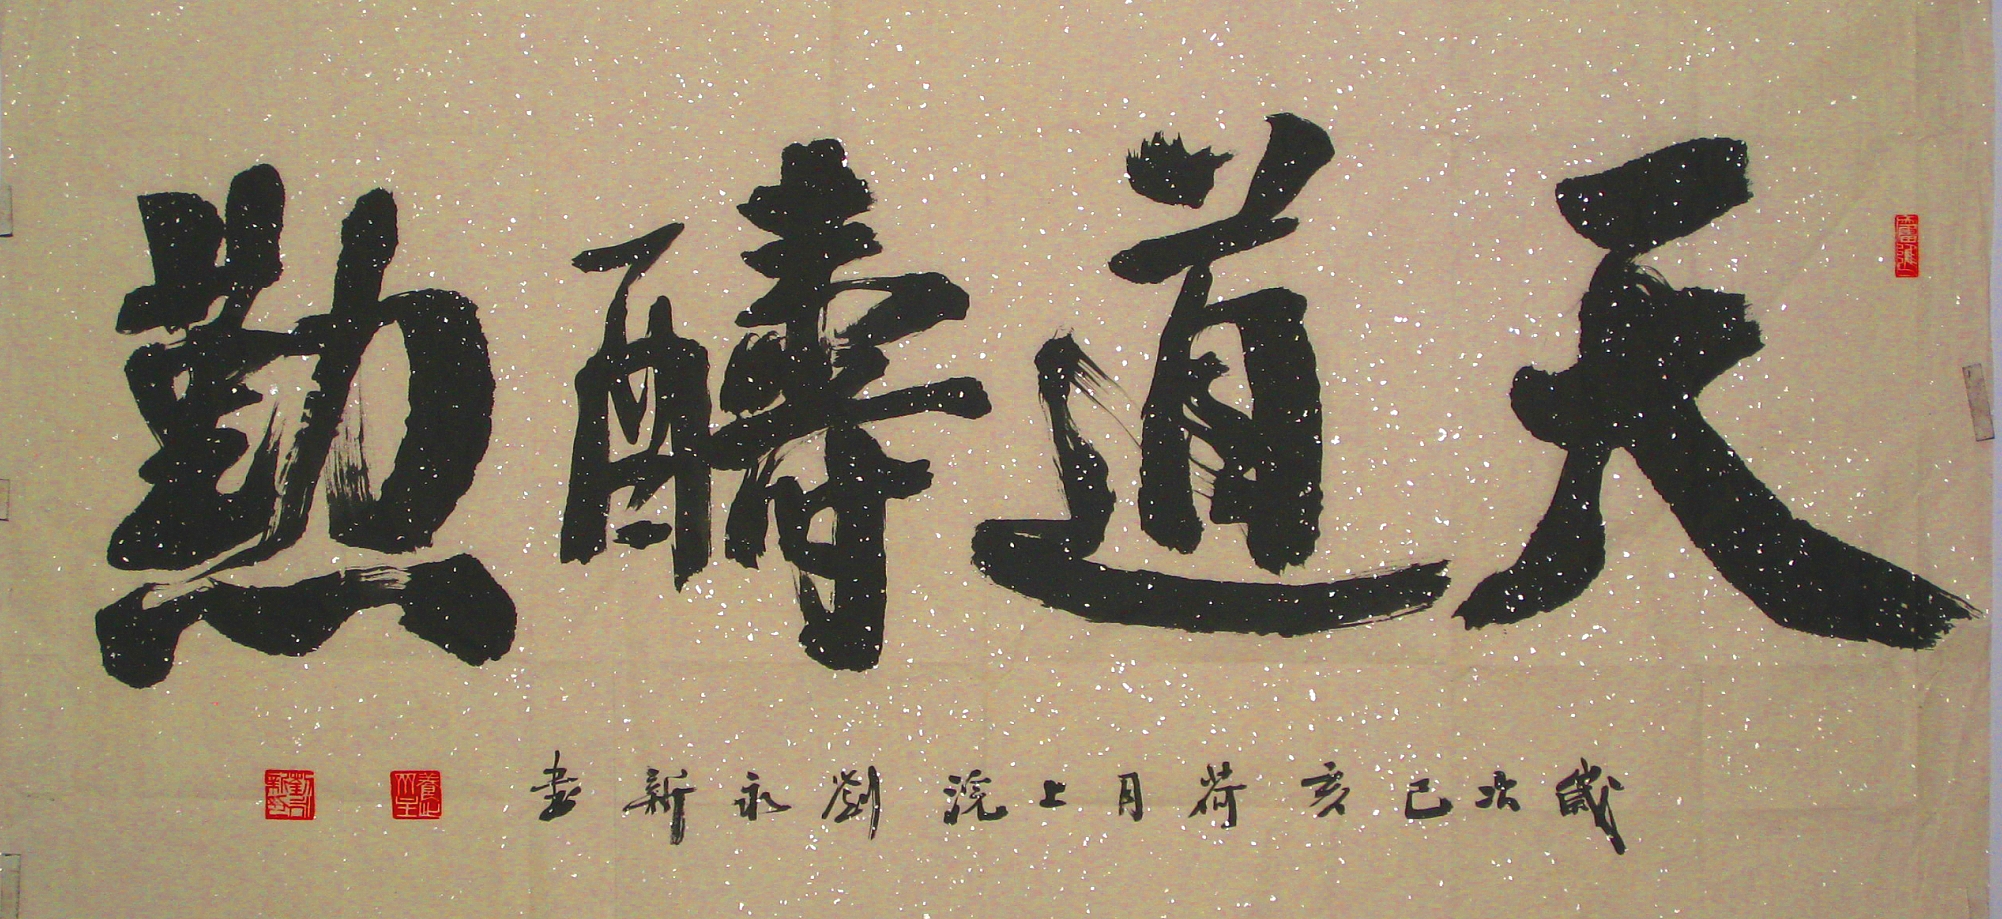 天道酬勤
歲次己亥荷月上浣劉永新書